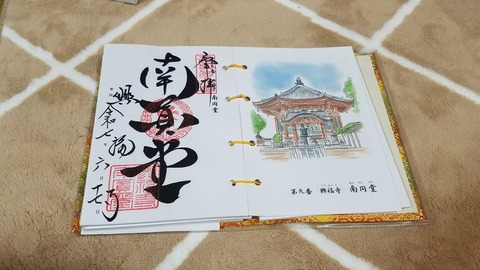 奉拝
南円堂
南圓堂
興福寺
令和七年六月十七日
第九番 興福寺 南円堂